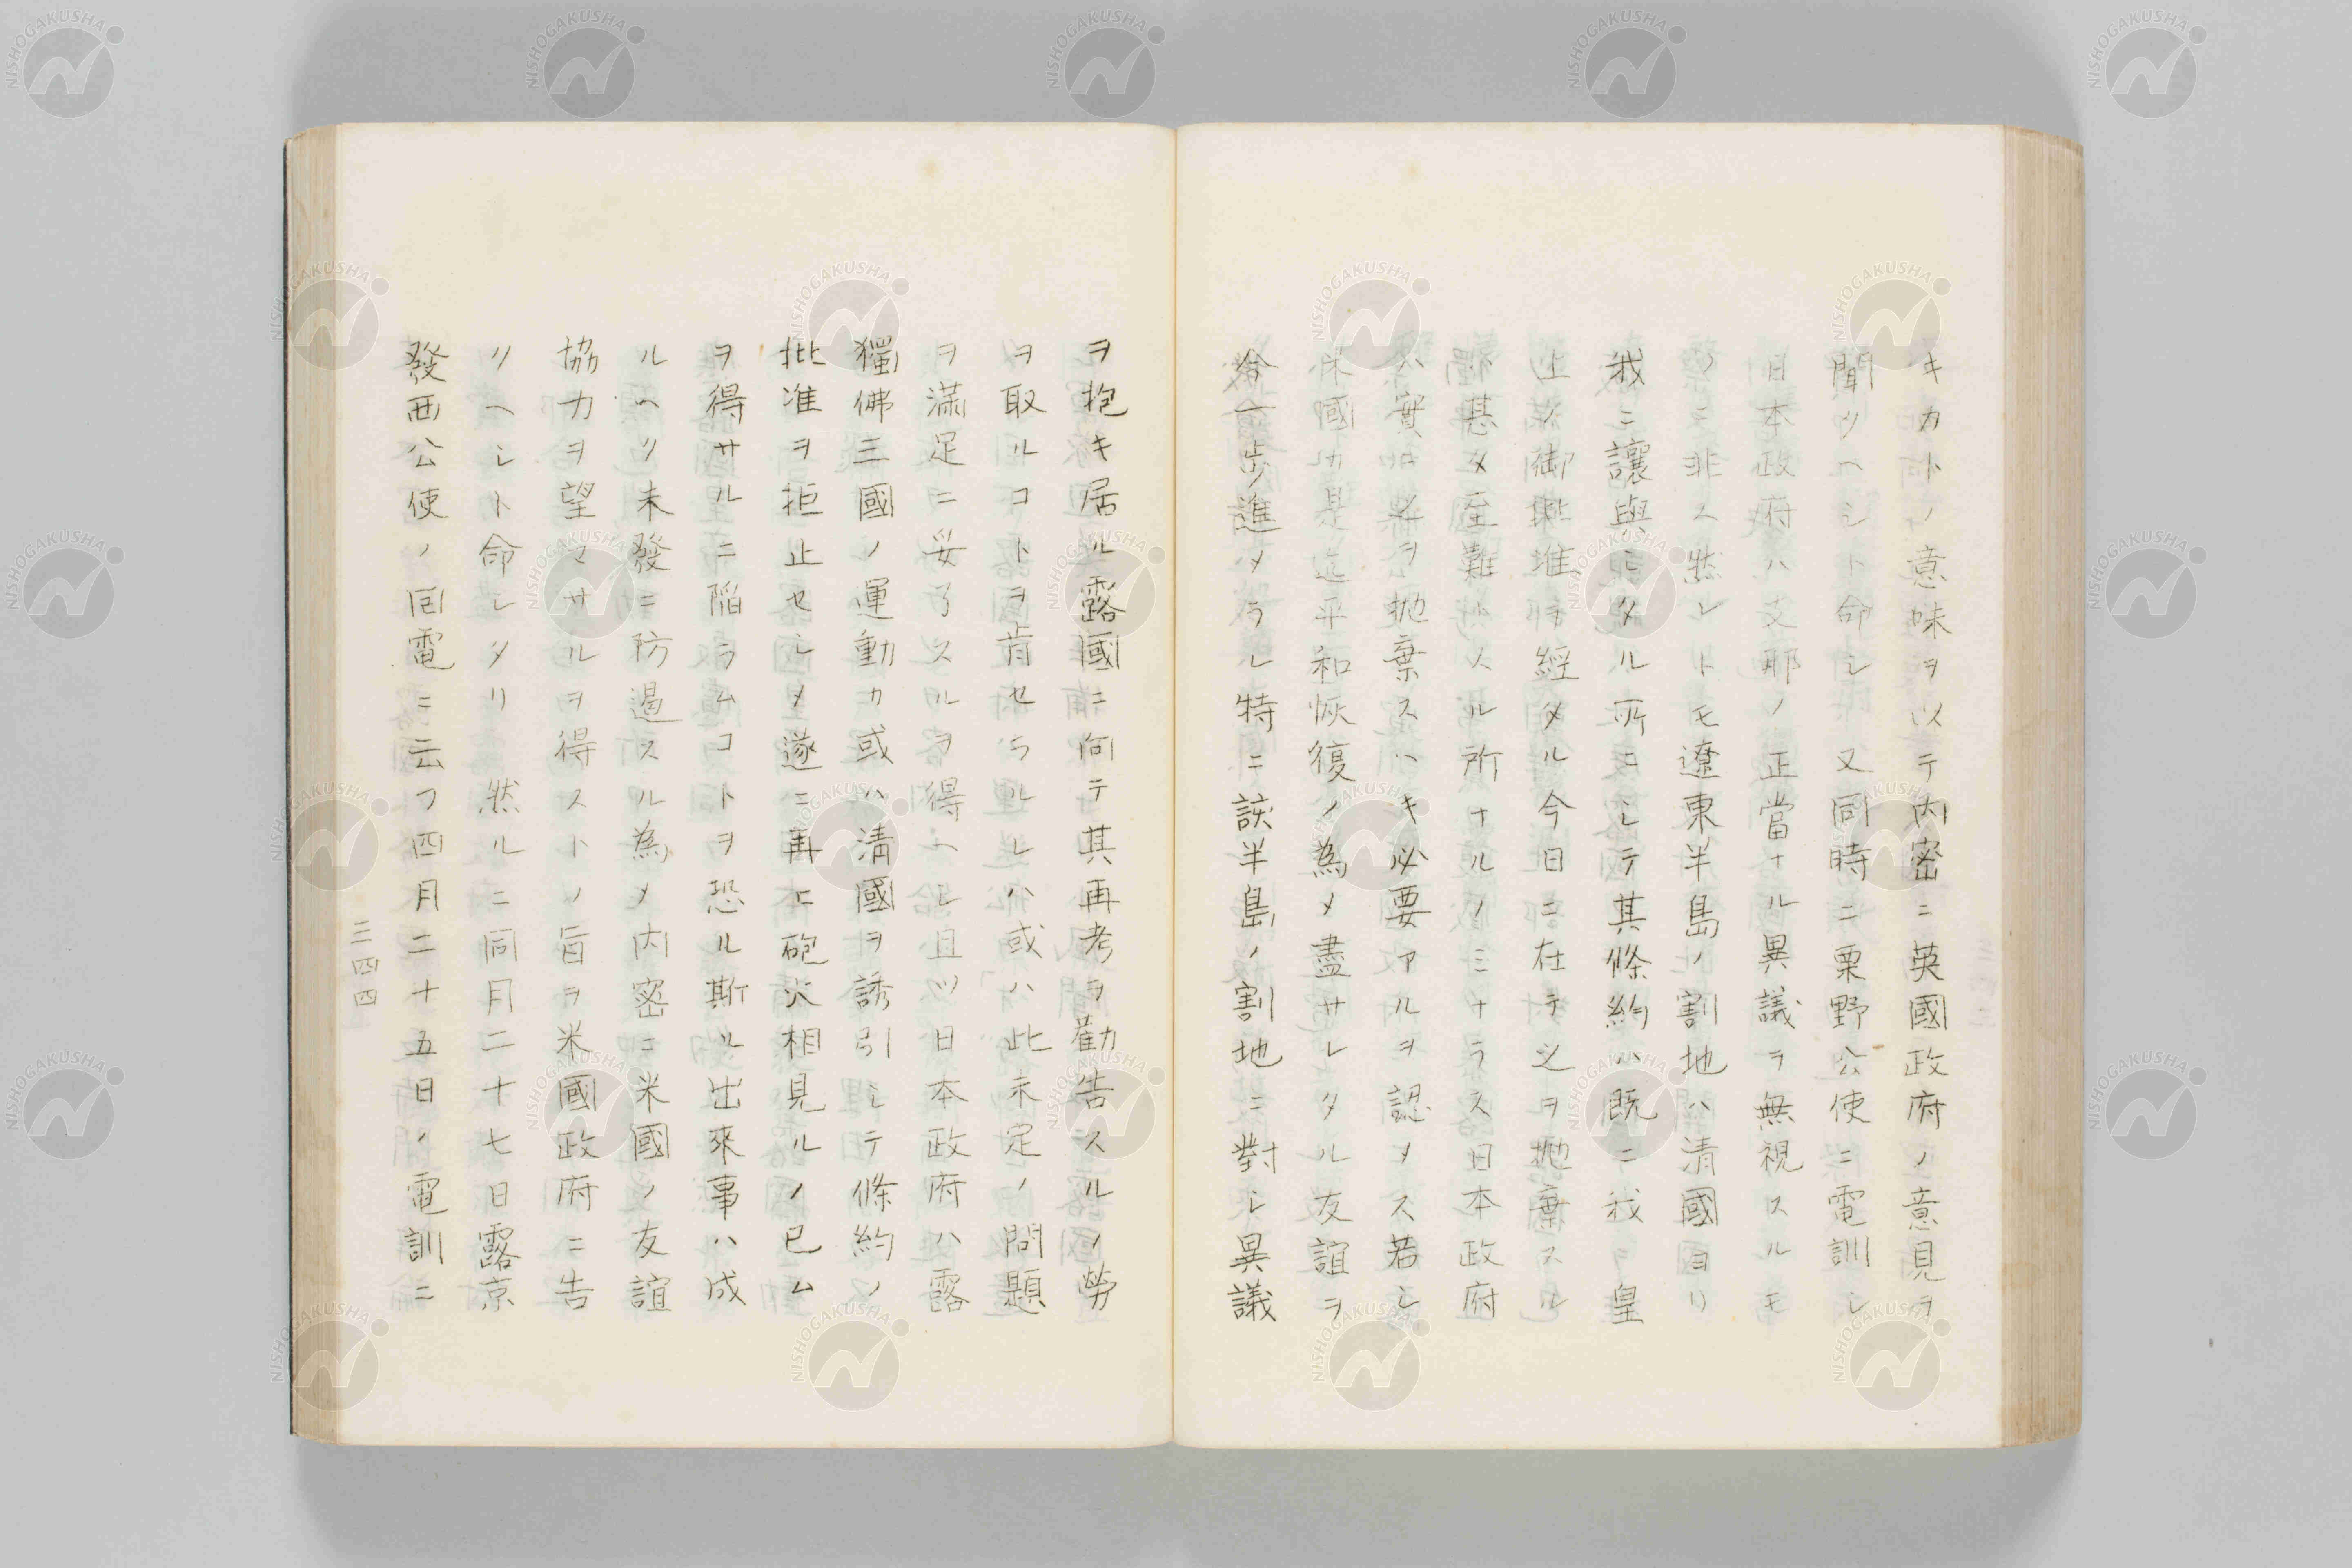 キカトノ意味ヲ以テ内密ニ英國政府ノ意見ヲ
聞ツヘシト命シ 又同時ニ栗野公使ニ電訓シ
日本政府ハ支那ノ正當ナル異議ヲ無視スルモ
ノニ非ス然レトモ遼東半島ノ割地ハ清國ヨリ
我ニ讓與シタル所ニシテ其條約ハ既ニ我 皇
上ノ御批准ヲ經タル今日ニ在テ之ヲ抛棄スル
ハ甚タ至難トスル所ナルノミナラス日本政府
ハ實ニ之ヲ抛棄スヘキ必要アルヲ認メス若シ
米國カ是迄平和恢復ノ為メ盡サレタル友誼ヲ
今一歩進メラレ特ニ該半島ノ割地ニ對シ異議
ヲ抱キ居ル露國ニ向テ其再考ヲ勸告スルノ勞
ヲ取ルコトヲ肯セラルレハ或ハ此未定ノ問題
ヲ滿足ニ妥了スルヲ得ヘシ且ツ日本政府ハ露
獨佛三國ノ運動カ或ハ清國ヲ誘引シテ條約ノ
批准ヲ拒止セシメ遂ニ再ヒ砲火相見ルノ已ム
ヲ得サルニ陥ラムコトヲ恐ル斯ル出來事ハ成
ルヘク未發ニ防遏スル為メ内密ニ米國ノ友誼
協力ヲ望マサルヲ得ストノ旨ヲ米國政府ニ告
クヘシト命シタリ 然ルニ同月二十七日露京
發西公使ノ回電ニ云フ四月二十五日ノ電訓ニ
三四四
NISHOGAKUSHA